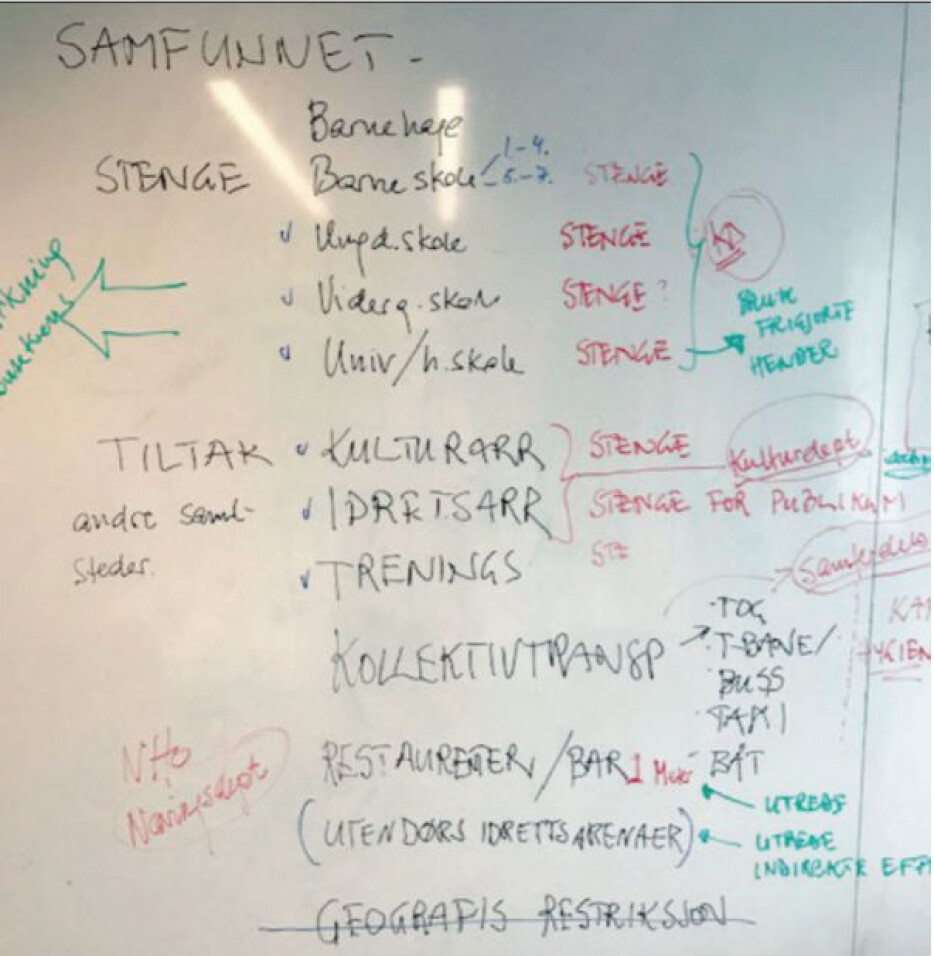 SAMFUNNET -
Barnehage
STENGE Barneskole 1.-4. STENGE
5.-7.
Ungd.skole STENGE KD
Viderg.skole STENGE?
Univ/h.skole STENGE
FRIGJORTE
HENDER
TILTAK KULTURARR STENGE Kulturdept
andre saml- IDRETSARR STENGE FOR PUBLIKUM
steder. TRENINGS STE
Samferdsels
KOLLEKTIVTRANSP · TOG
· T-BANE/
BUSS
· TAXI
- BÅT
NHO
Næringsdept
RESTAURENTER/BAR 1 Meter
UTREDE
(UTENDØRS IDRETTSARENAER)
UTREDE
INDIREKTE EFF
GEOGRAFIS RESTRIKSJON